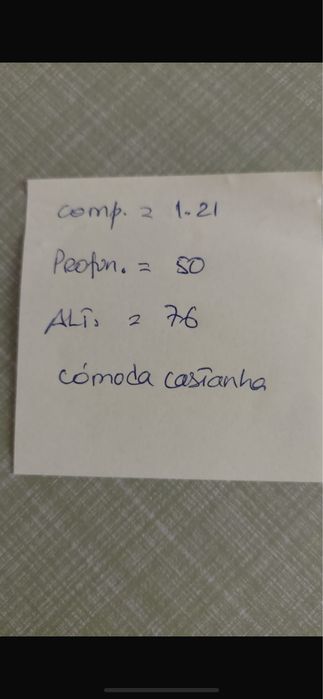 comp. = 1.21
Profun. = 50
ALT. = 76
cómoda castanha